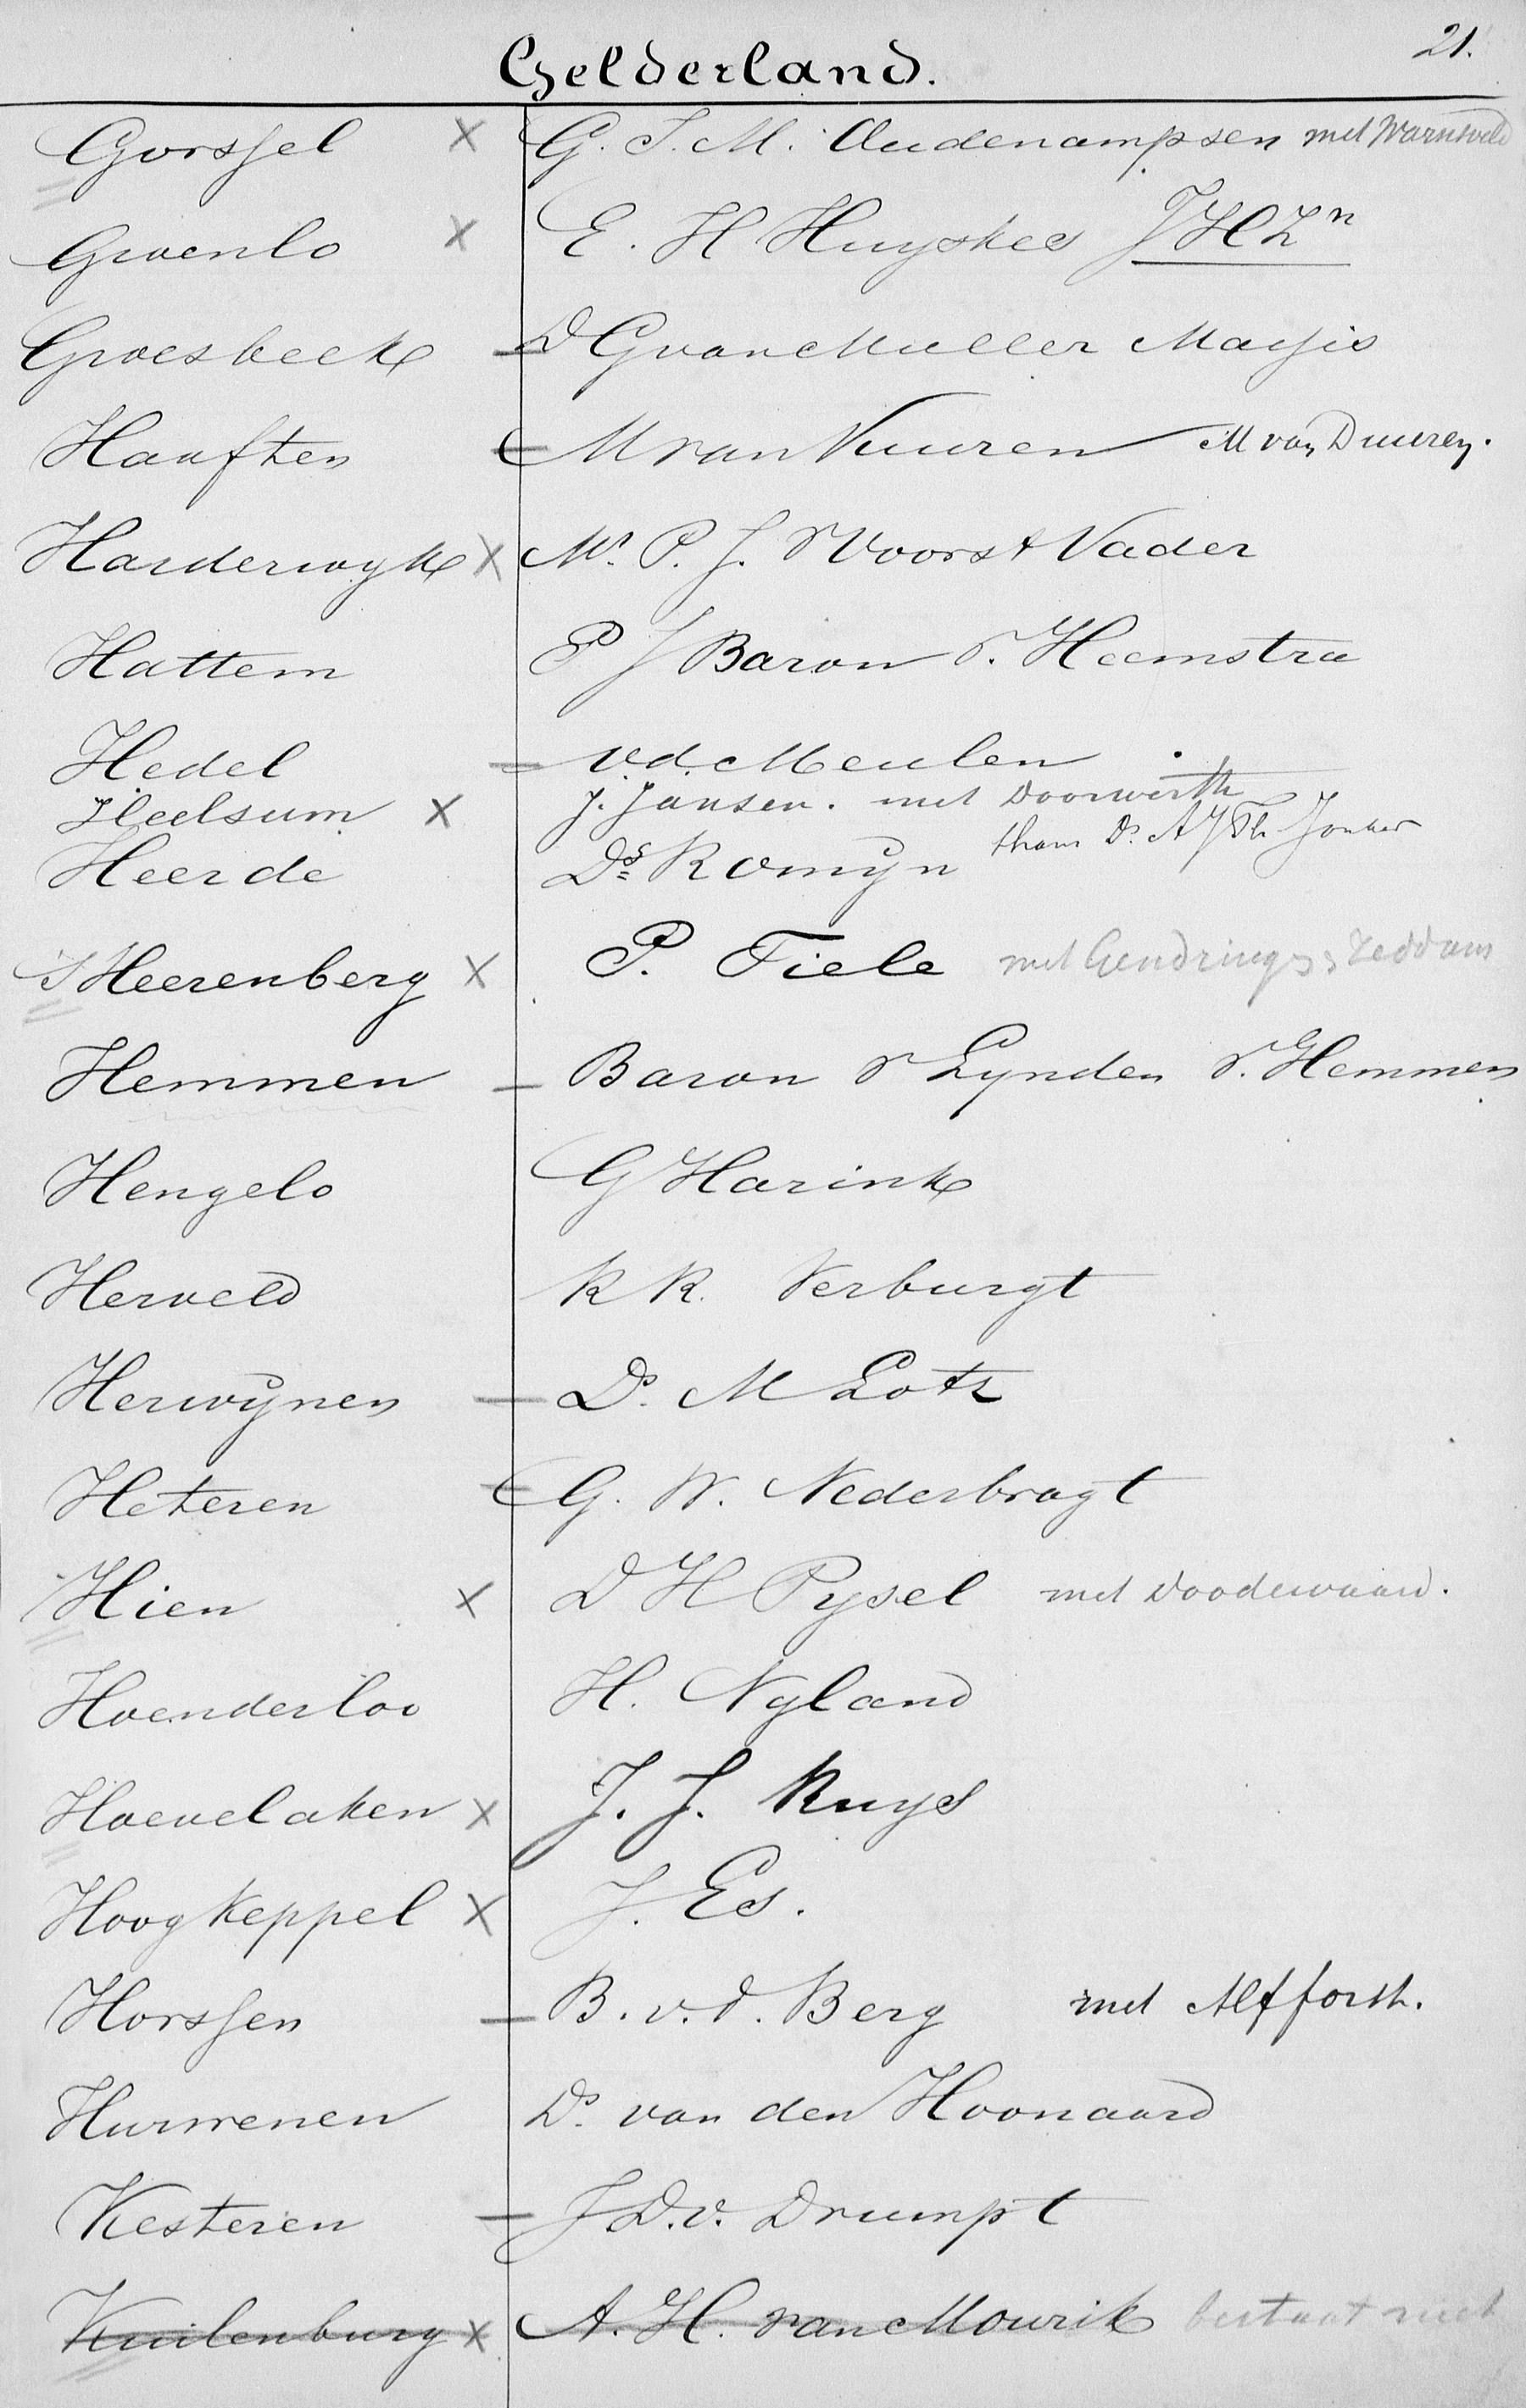 21.
Gelderland.
Gorssel × G. J. M. Oudenampsen met Warnsveld
Groenlo × E. H Huyskes JHZn
Groesbeek — D G van Muller Massis
Haaften — M van Vuuren M van Duuren.
Harderwyk × Mr. P. J. v Voorst Vader
Hattem P J Baron v. Heemstra
Hedel — v.d. Meulen
Heelsum × J. Jansen. met Doorwerth
Heerde Ds Romijn thans Ds. A J Th Jonker
S Heerenberg × P. Tiele met Gendringen, Zeddam
Hemmen — Baron v Lynden v. Hemmen
Hengelo G Harink
Herveld K K. Verburgt
Herwijnen — Ds. M Lotz
Heteren — G. W. Nederbragt
Hien × D H Pysel met Doodewaard.
Hoenderloo H. Nyland
Hoevelaken × J. J. Ruys
Hoog Keppel × J. Es.
Horssen — B. v. d. Berg met Alfforst.
Hurwenen Ds. van den Hoonaard
Kesteren — J D. v. Drumpt
Kuilenburg × A. H. van Mourik bestaat niet